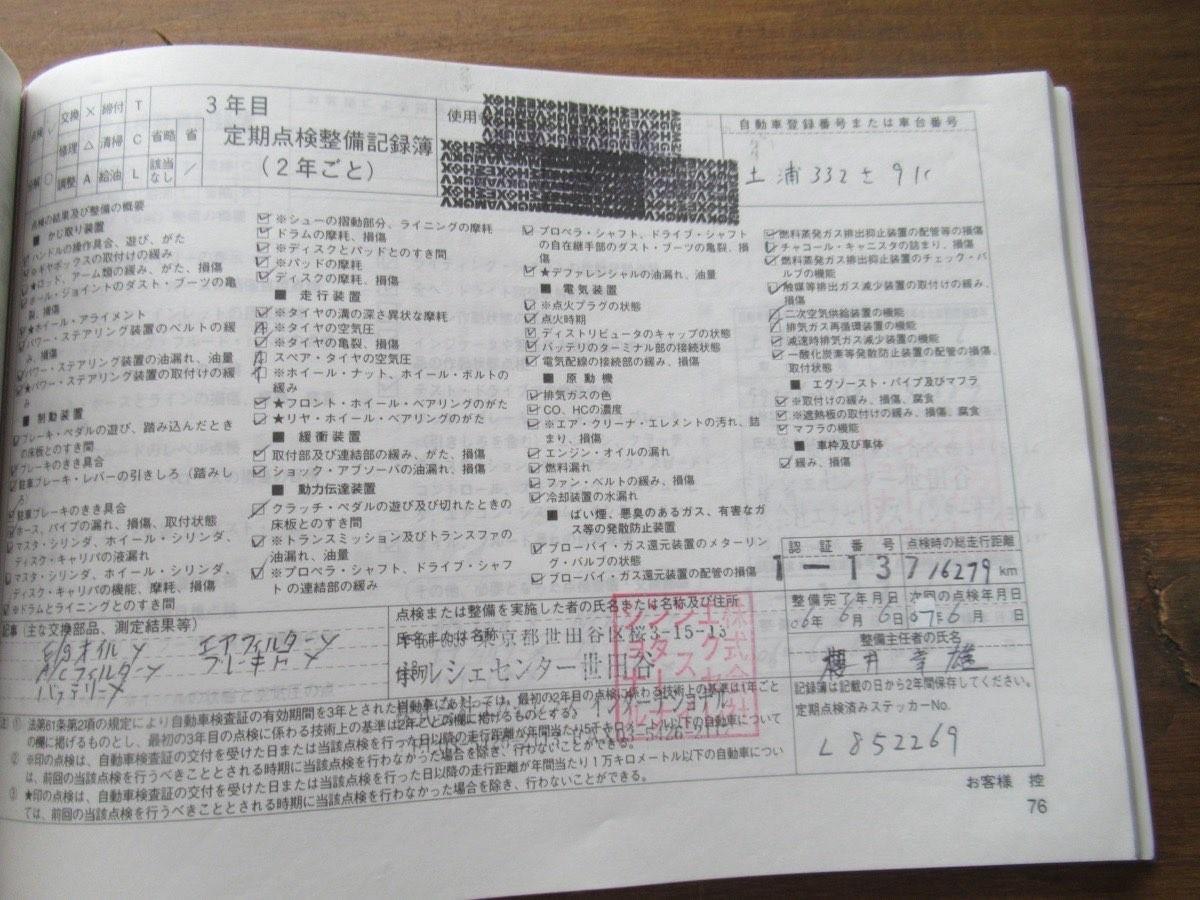 点検 ✓ 交換 × 締付 T
修理 △ 清掃 C 省略 省
分解 ○ 調整 A 給油 L 該当なし ／
3年目
定期点検整備記録簿
（2年ごと）
使用者
自動車登録番号または車台番号
土浦 332 さ 91
点検の結果及び整備の概要
■ かじ取り装置
ハンドルの操作具合、遊び、がた
ギヤボックスの取付けの緩み
★ロッド、アーム類の緩み、がた、損傷
ボール・ジョイントのダスト・ブーツの亀
裂、損傷
★ホイール・アライメント
パワー・ステアリング装置のベルトの緩
み、損傷
パワー・ステアリング装置の油漏れ、油量
★パワー・ステアリング装置の取付けの緩
み
■ 制動装置
ブレーキ・ペダルの遊び、踏み込んだとき
の床板とのすき間
ブレーキのきき具合
駐車ブレーキ・レバーの引きしろ（踏みし
ろ）
駐車ブレーキのきき具合
ホース、パイプの漏れ、損傷、取付状態
マスタ・シリンダ、ホイール・シリンダ、
ディスク・キャリパの液漏れ
マスタ・シリンダ、ホイール・シリンダ、
ディスク・キャリパの機能、摩耗、損傷
※ドラムとライニングとのすき間
※シューの摺動部分、ライニングの摩耗
ドラムの摩耗、損傷
※ディスクとパッドとのすき間
※パッドの摩耗
ディスクの摩耗、損傷
■ 走行装置
※タイヤの溝の深さ異状な摩耗
※タイヤの空気圧
※タイヤの亀裂、損傷
スペア・タイヤの空気圧
※ホイール・ナット、ホイール・ボルトの
緩み
★フロント・ホイール・ベアリングのがた
★リヤ・ホイール・ベアリングのがた
■ 緩衝装置
取付部及び連結部の緩み、がた、損傷
ショック・アブソーバの油漏れ、損傷
■ 動力伝達装置
クラッチ・ペダルの遊び及び切れたときの
床板とのすき間
※トランスミッション及びトランスファの
油漏れ、油量
※プロペラ・シャフト、ドライブ・シャフ
トの連結部の緩み
プロペラ・シャフト、ドライブ・シャフト
の自在継手部のダスト・ブーツの亀裂、損
傷
★デファレンシャルの油漏れ、油量
■ 電気装置
※点火プラグの状態
点火時期
ディストリビュータのキャップの状態
バッテリのターミナル部の接続状態
電気配線の接続部の緩み、損傷
■ 原動機
排気ガスの色
CO、HCの濃度
※エア・クリーナ・エレメントの汚れ、詰
まり、損傷
エンジン・オイルの漏れ
燃料漏れ
ファン・ベルトの緩み、損傷
冷却装置の水漏れ
■ ばい煙、悪臭のあるガス、有害なガ
ス等の発散防止装置
ブローバイ・ガス還元装置のメターリン
グ・バルブの状態
ブローバイ・ガス還元装置の配管の損傷
燃料蒸発ガス排出抑止装置の配管等の損傷
チャコール・キャニスタの詰まり、損傷
燃料蒸発ガス排出抑止装置のチェック・バ
ルブの機能
触媒等排出ガス減少装置の取付けの緩み、
損傷
二次空気供給装置の機能
排気ガス再循環装置の機能
減速時排気ガス減少装置の機能
一酸化炭素等発散防止装置の配管の損傷、
取付状態
■ エグゾースト・パイプ及びマフラ
※取付けの緩み、損傷、腐食
※遮熱板の取付けの緩み、損傷、腐食
マフラの機能
■ 車枠及び車体
緩み、損傷
認証番号
1-137
点検時の総走行距離
16279 km
整備完了年月日
06年 6月 6日
次回の点検年月日
07年 6月 日
整備主任者の氏名
櫻井幸雄
記録簿は記載の日から2年間保存してください。
定期点検済みステッカーNo.
L 852269
記事（主な交換部品、測定結果等）
E/gオイル× エアフィルター×
A/Cフィルター× ブレーキO×
バッテリー×
点検または整備を実施した者の氏名または名称及び住所
氏名または名称
東京都世田谷区桜3-15-15
住所
ポルシェセンター世田谷
03-5426-
注① 法第61条第2項の規定により自動車検査証の有効期間を3年とされた自動車にあっては、最初の2年目の点検に係わる技術上の基準は1年ごと
の欄に掲げるものとし、最初の3年目の点検に係わる技術上の基準は2年ごとの欄に掲げるものとする。
② ※印の点検は、自動車検査証の交付を受けた日または当該点検を行った日以降の走行距離が年間当たり5千キロメートル以下の自動車について
は、前回の当該点検を行うべきこととされる時期に当該点検を行わなかった場合を除き、行わないことができる。
③ ★印の点検は、自動車検査証の交付を受けた日または当該点検を行った日以降の走行距離が年間当たり1万キロメートル以下の自動車につい
ては、前回の当該点検を行うべきこととされる時期に当該点検を行わなかった場合を除き、行わないことができる。
お客様 控
76